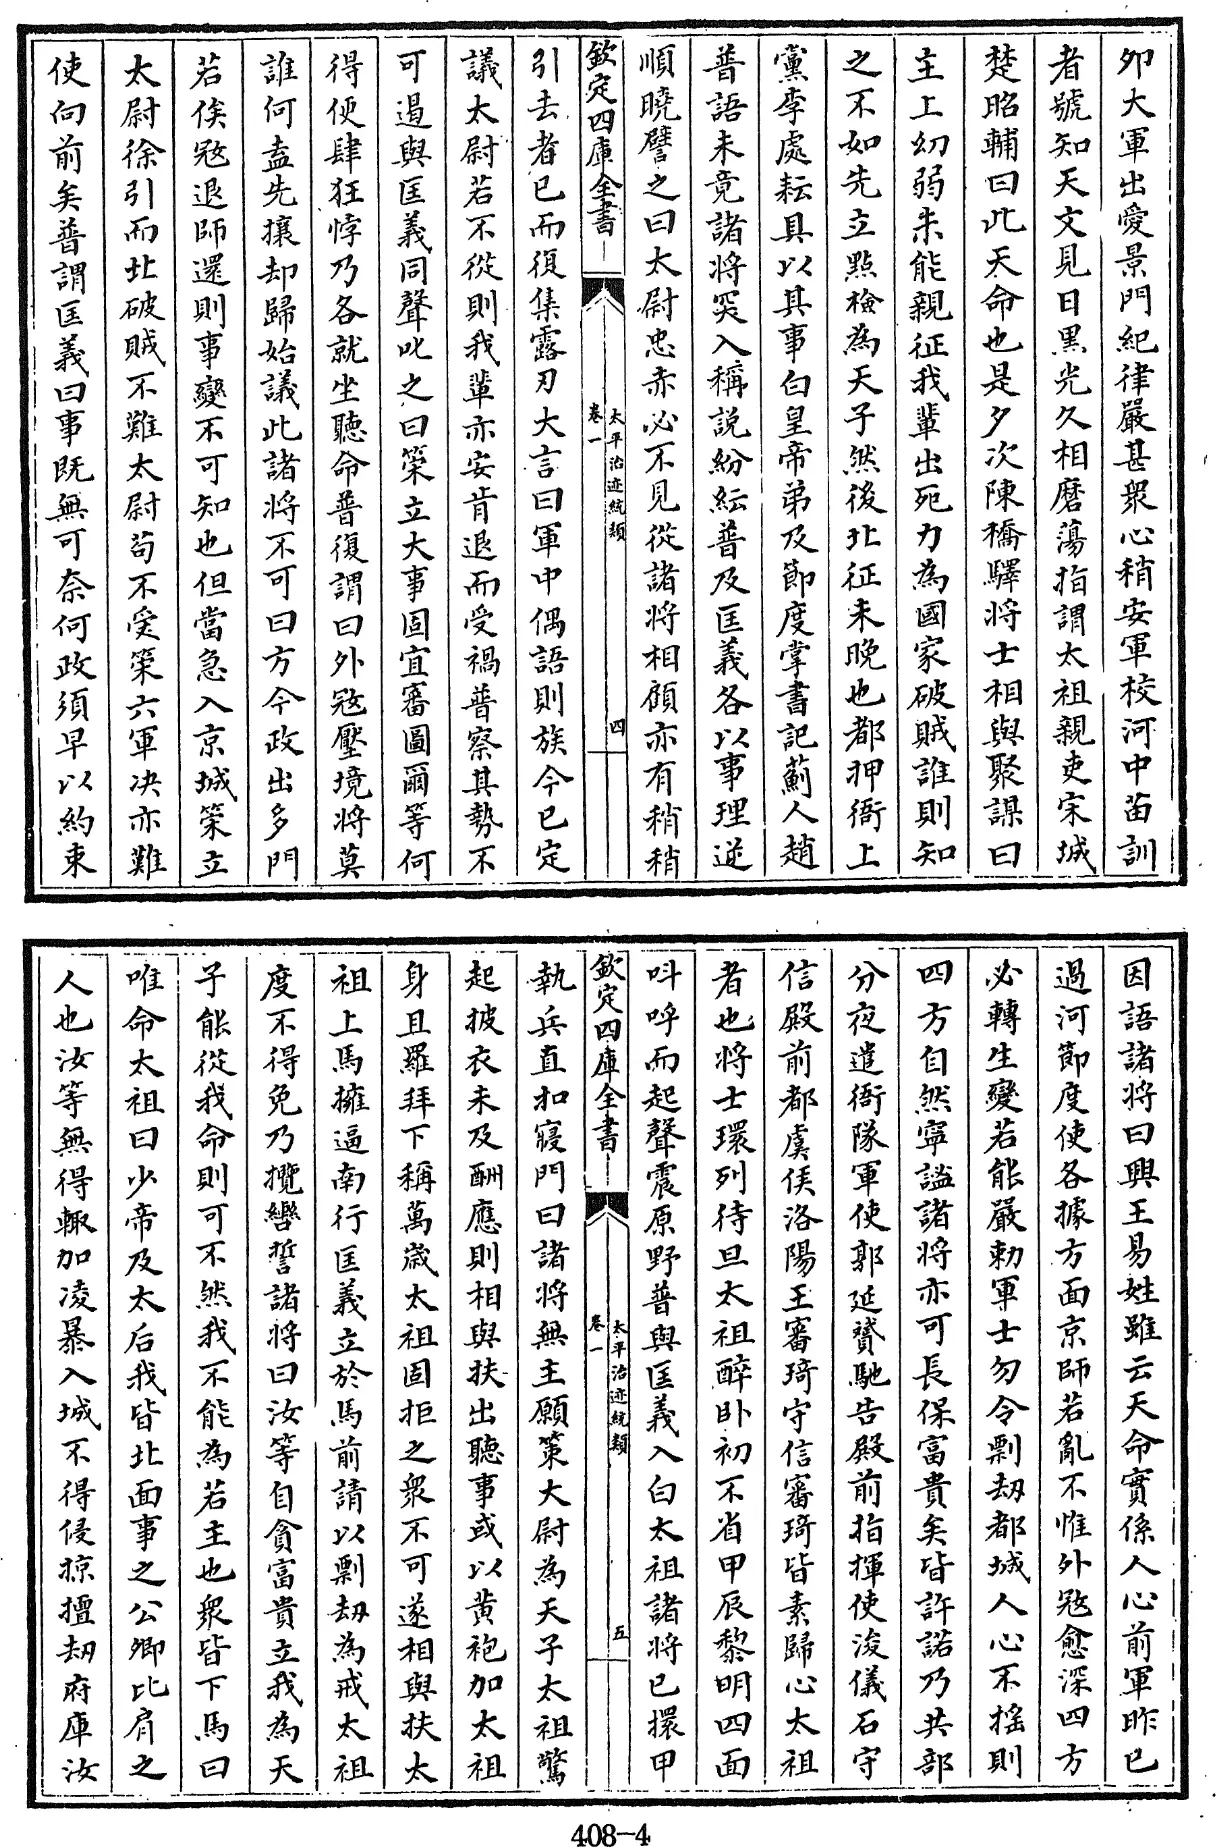 夘大軍出愛景門紀律嚴甚衆心稍安軍校河中苗訓
者號知天文見日黑光久相磨蕩指謂太祖親吏宋城
楚昭輔曰此天命也是夕次陳橋驛將士相與聚謀曰
主上幼弱未能親征我輩出死力為國家破賊誰則知
之不如先立點檢為天子然後北征未晚也都押衙上
黨李處耘具以其事白皇帝弟及節度掌書記薊人趙
普語未竟諸將突入稱說紛紜普及匡義各以事理逆
順曉譬之曰太尉忠赤必不見從諸將相顧亦有稍稍
欽定四庫全書
太平治迹統類
卷一
四
引去者已而復集露刃大言曰軍中偶語則族今已定
議太尉若不從則我輩亦安肯退而受禍普察其勢不
可遏與匡義同聲叱之曰策立大事固宜審圖爾等何
得便肆狂悖乃各就坐聽命普復謂曰外宼壓境將莫
誰何盍先攘却歸始議此諸將不可曰方今政出多門
若俟宼退師還則事變不可知也但當急入京城策立
太尉徐引而北破賊不難太尉苟不受策六軍决亦難
使向前矣普謂匡義曰事既無可奈何政須早以約束
因語諸將曰興王易姓雖云天命實係人心前軍昨已
過河節度使各據方面京師若亂不惟外宼愈深四方
必轉生變若能嚴勅軍士勿令剽刼都城人心不揺則
四方自然寧謐諸將亦可長保富貴矣皆許諾乃共部
分夜遣衙隊軍使郭延贇馳告殿前指揮使浚儀石守
信殿前都虞侯洛陽王審琦守信審琦皆素歸心太祖
者也將士環列待旦太祖醉卧初不省甲辰黎明四面
呌呼而起聲震原野普與匡義入白太祖諸將已擐甲
欽定四庫全書
太平治迹統類
卷一
五
執兵直扣寢門曰諸將無主願策大尉為天子太祖驚
起披衣未及酬應則相與扶出聽事或以黄袍加太祖
身且羅拜下稱萬歳太祖固拒之衆不可遂相與扶太
祖上馬擁逼南行匡義立於馬前請以剽刼為戒太祖
度不得免乃攬轡誓諸將曰汝等自貪富貴立我為天
子能從我命則可不然我不能為若主也衆皆下馬曰
唯命太祖曰少帝及太后我皆北面事之公卿比肩之
人也汝等無得輙加凌暴入城不得侵掠擅刼府庫汝
408-4